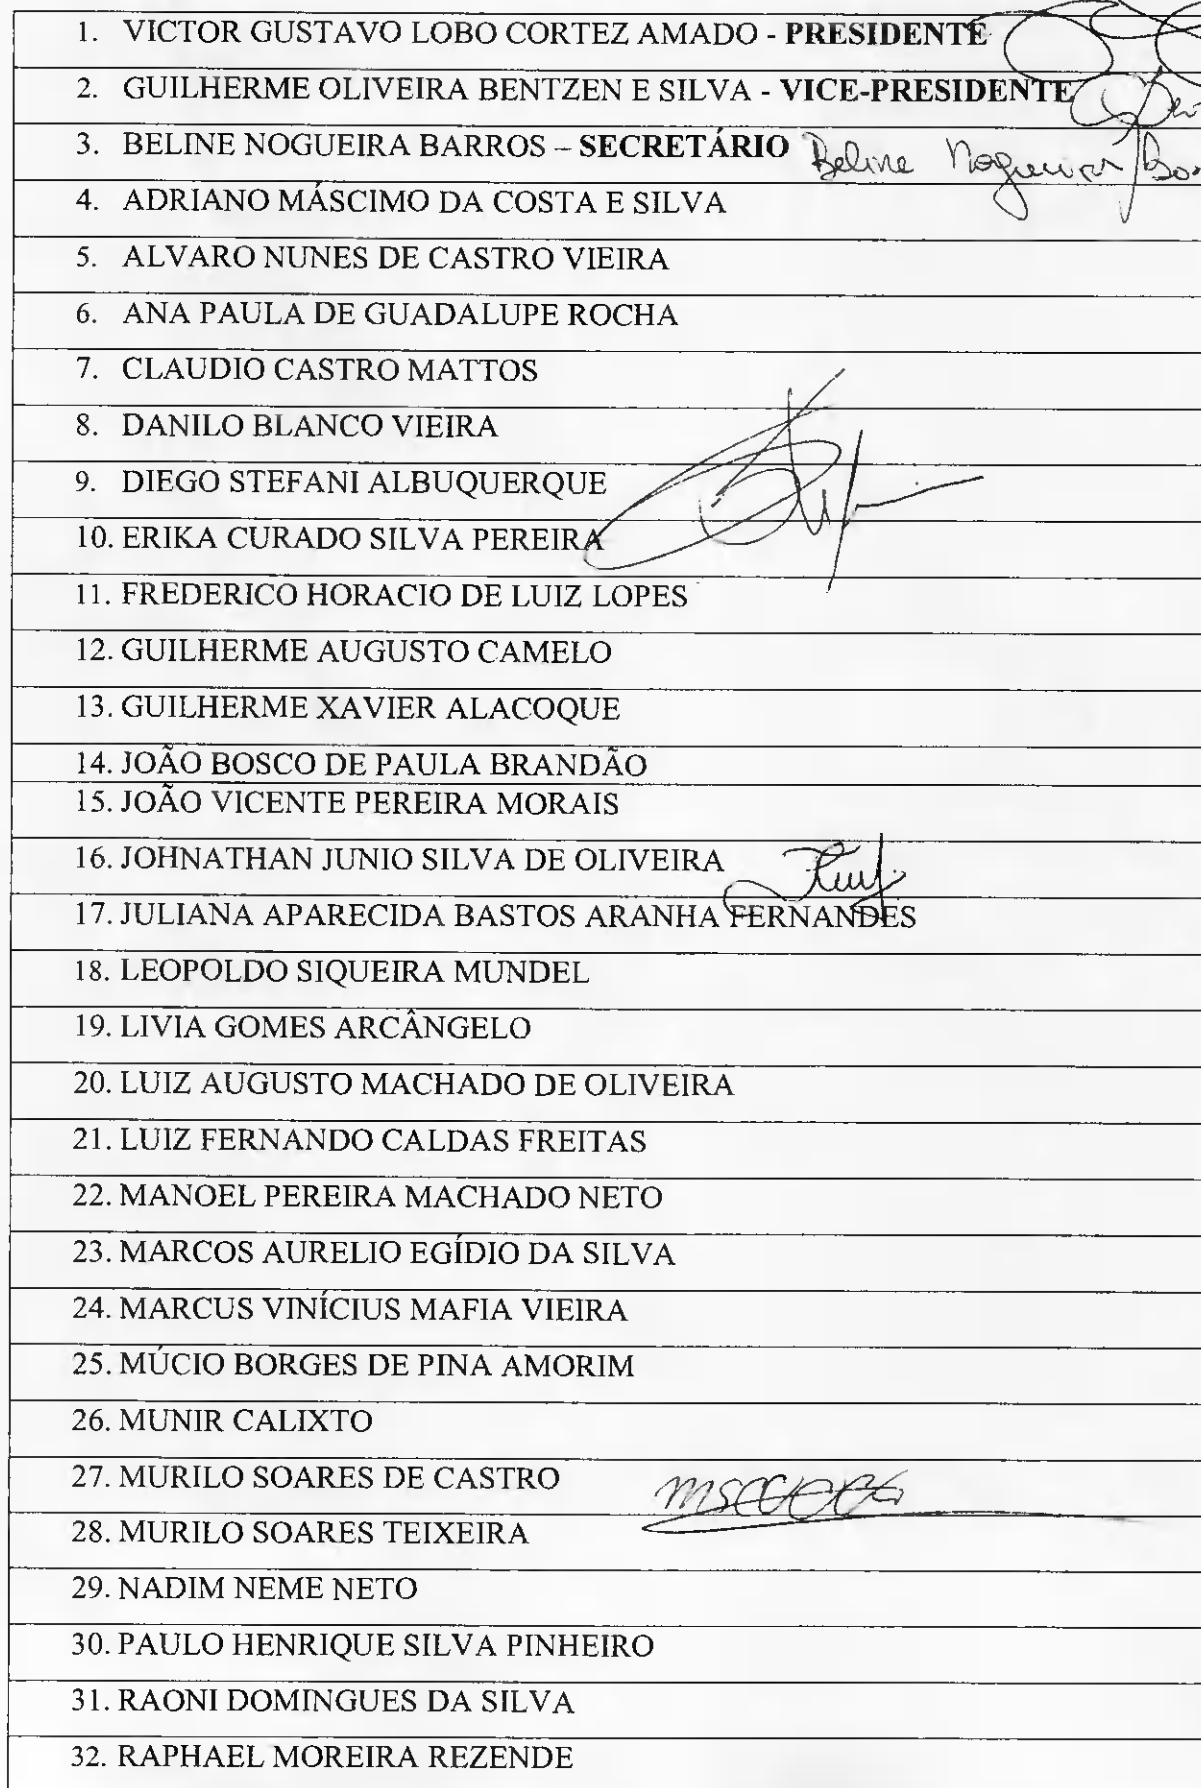 1. VICTOR GUSTAVO LOBO CORTEZ AMADO - PRESIDENTE
2. GUILHERME OLIVEIRA BENTZEN E SILVA - VICE-PRESIDENTE
3. BELINE NOGUEIRA BARROS – SECRETÁRIO Beline Nogueira
4. ADRIANO MÁSCIMO DA COSTA E SILVA
5. ALVARO NUNES DE CASTRO VIEIRA
6. ANA PAULA DE GUADALUPE ROCHA
7. CLAUDIO CASTRO MATTOS
8. DANILO BLANCO VIEIRA
9. DIEGO STEFANI ALBUQUERQUE
10. ERIKA CURADO SILVA PEREIRA
11. FREDERICO HORACIO DE LUIZ LOPES
12. GUILHERME AUGUSTO CAMELO
13. GUILHERME XAVIER ALACOQUE
14. JOÃO BOSCO DE PAULA BRANDÃO
15. JOÃO VICENTE PEREIRA MORAIS
16. JOHNATHAN JUNIO SILVA DE OLIVEIRA
17. JULIANA APARECIDA BASTOS ARANHA FERNANDES
18. LEOPOLDO SIQUEIRA MUNDEL
19. LIVIA GOMES ARCÂNGELO
20. LUIZ AUGUSTO MACHADO DE OLIVEIRA
21. LUIZ FERNANDO CALDAS FREITAS
22. MANOEL PEREIRA MACHADO NETO
23. MARCOS AURELIO EGÍDIO DA SILVA
24. MARCUS VINÍCIUS MAFIA VIEIRA
25. MÚCIO BORGES DE PINA AMORIM
26. MUNIR CALIXTO
27. MURILO SOARES DE CASTRO
28. MURILO SOARES TEIXEIRA
29. NADIM NEME NETO
30. PAULO HENRIQUE SILVA PINHEIRO
31. RAONI DOMINGUES DA SILVA
32. RAPHAEL MOREIRA REZENDE